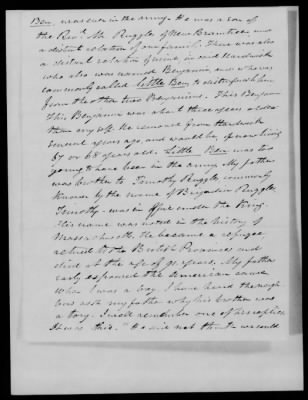 Ben was ever in the army. He was a son of
the Revd. Mr. Ruggle of New Braintree and
a distant relation of our family. There was also
a distant relation of mine in said Hardwick
who also was named Benjamin, and who was
commonly called Little Ben to distinguish him
from the other two Benjamins. This Benjamin
This Benjamin was about three years older
than myself. He removed from Hardwick
several years ago, and would be, if now living
67 or 68 years old. Little Ben was too
young to have been in the army. My father
was brother to Timothy Ruggles commonly
known by the name of Brigadier Ruggles
Timothy was in office under the King.
His name was noted in the history of
Massachusetts. He became a refugee
retired to the British Provinces and
died at the age of 91 years. My father
early espoused the American cause
When I was a boy, I have heard the neigh-
bours ask my father why his brother was
a tory. I well remember one of his replies
It was this. "He did not think we could